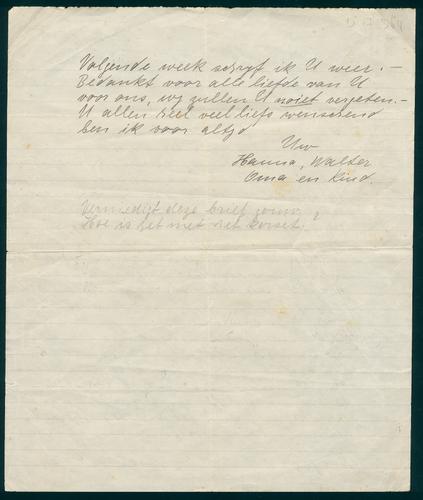 Volgende week schryf ik U weer. —
Bedankt voor alle liefde van U
voor ons, wy zullen U nooit vergeten. —
U allen heel veel liefs wenschend
ben ik voor altyd
Uw
Hanna, Walter
Oma en Kind.
deze brief
Hoe is het met het korset?